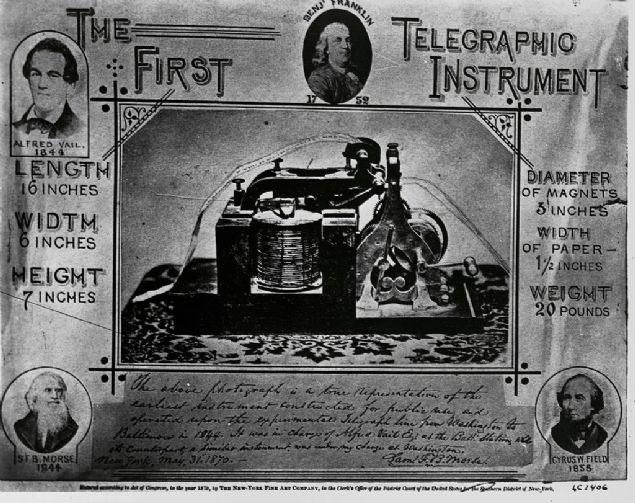 BENJ FRANKLIN
1752
THE
FIRST
TELEGRAPHIC
INSTRUMENT
ALFRED VAIL.
1844
LENGTH
16 INCHES
WIDTH
6 INCHES
HEIGHT
7 INCHES
DIAMETER
OF MAGNETS
3 INCHES
WIDTH
OF PAPER-
1½ INCHES
WEIGHT
20 POUNDS
The above photograph is a true representation of the
earliest instrument constructed for public use, and
operated upon the experimental Telegraph line from Washington to
Baltimore in 1844. It was in charge of Alfred Vail Esq at the Balt. Station, and
its counterpart a similar instrument was under my charge at Washington.
New York, May 31. 1870. Saml. F. B. Morse.
S.F.B. MORSE
1844
CYRUS W. FIELD
1858
Entered according to Act of Congress, in the year 1872, by THE NEW-YORK FINE ART COMPANY, in the Clerk's Office of the District Court of the United States for the Southern District of New-York.
LC1406